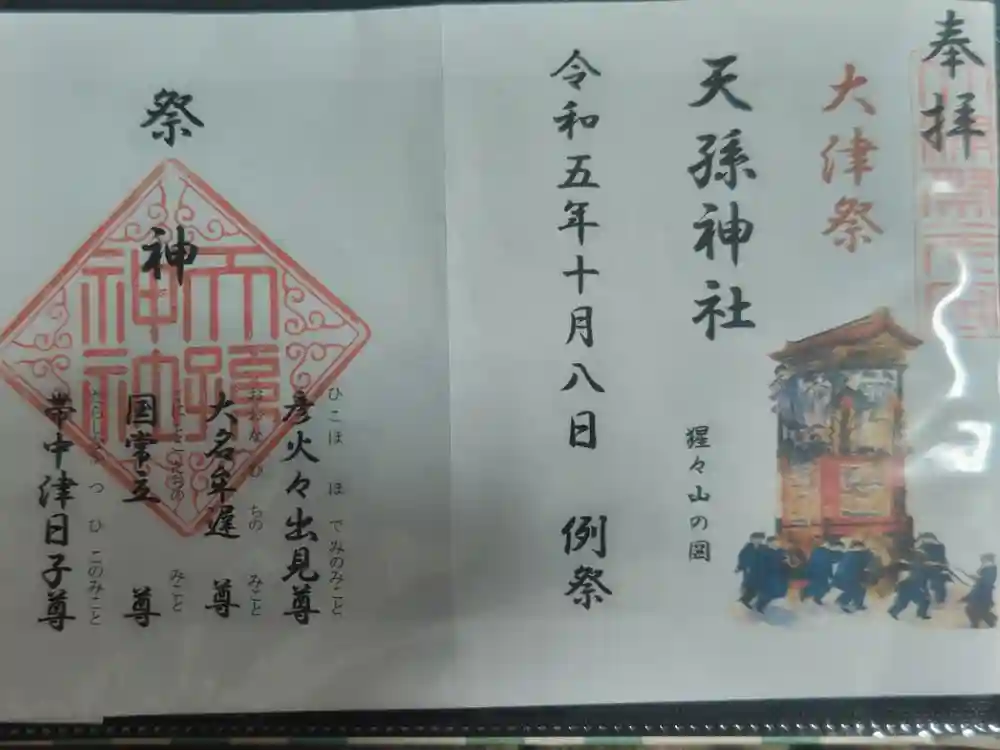 奉拝
大津祭
天孫神社
猩々山の図
令和五年十月八日 例祭
祭神
天孫神社
ひこほほでみのみこと
彦火々出見尊
おおなむちのみこと
大名牟遅尊
くにとこたちのみこと
国常立尊
たらしなかつひこのみこと
帯中津日子尊